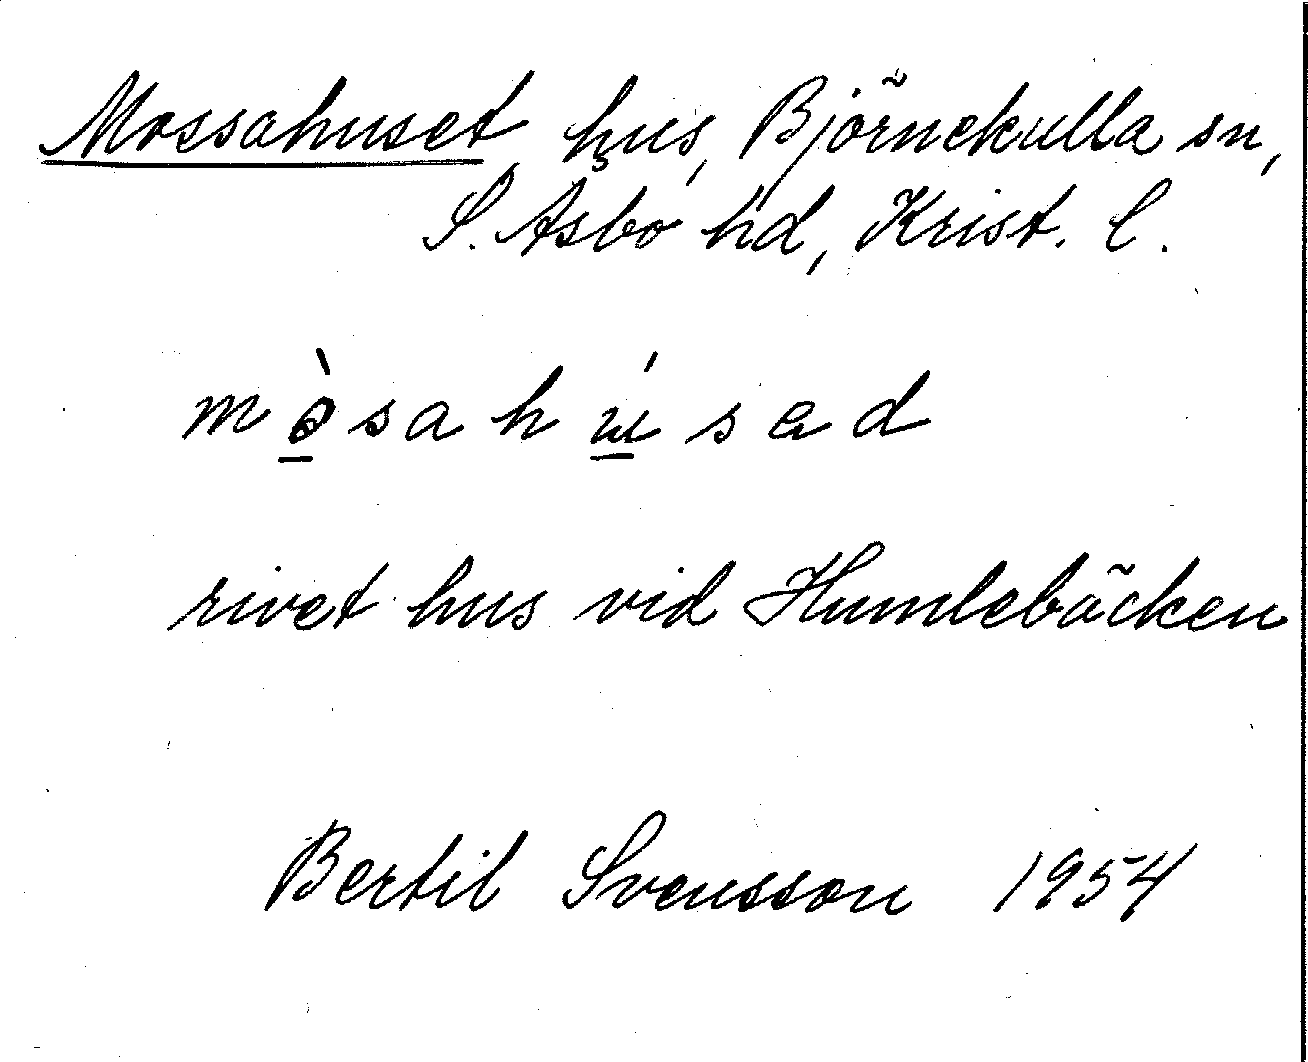 Mossahuset, hus, Björnekulla sn,
S. Åsbo hd, Krist. l.
mò̱sahɯ̱́sad
rivet hus vid Humlebäcken
Bertil Svensson 1954